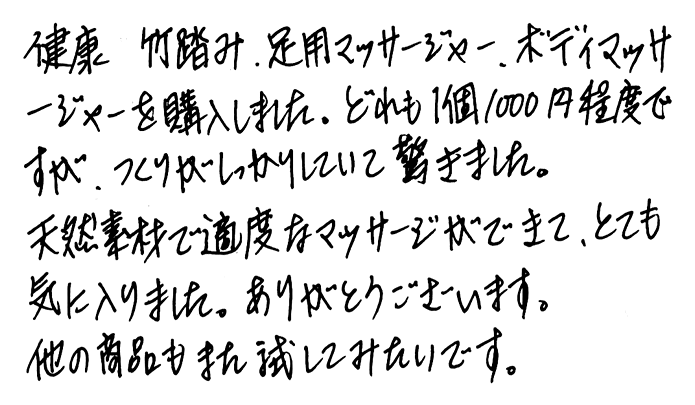 健康 竹踏み、足用マッサージャー、ボディマッサ
ージャーを購入しました。どれも1個1000円程度で
すが、つくりがしっかりしていて驚きました。
天然素材で適度なマッサージができて、とても
気に入りました。ありがとうございます。
他の商品もまた試してみたいです。